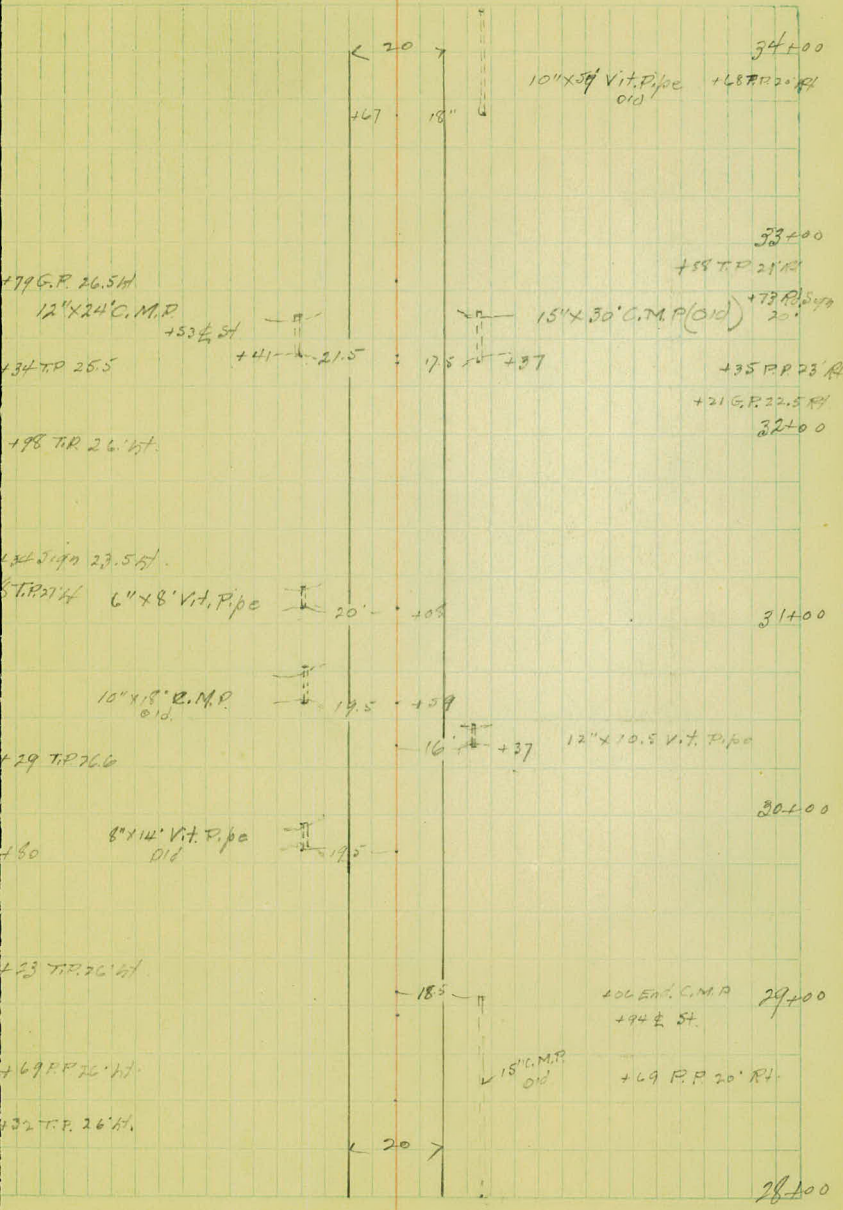 20
34+00
10"X59' Vit. Pipe
Old
+68 P.P. 20' Rt
+67
18"
33+00
+58 T.P. 21' Rt
+79 G.P. 26.5 Lt
12"X24' C.M.P.
+53 ⅊ St
15"X30' C.M.P. (Old)
+73 Rd. Sign
20'
+41
21.5
17.5
+37
+34 T.P. 25.5
+35 P.P. 23' Rt
+21 G.P. 22.5 Rt
32+00
+98 T.P. 26' Lt.
+34 Sign 23.5 Lt.
T.P. 27' Lt
6"X8' Vit. Pipe
20'
+08
31+00
10"X18' C.M.P.
Old
19.5
+59
16'
+37
12"X10.5 Vit. Pipe
+29 T.P. 26.6
30+00
8"X14' Vit. Pipe
Old
+80
19.5
+23 T.P. 26' Lt
18.5
+06 End. C.M.P.
29+00
+94 ⅊ St.
15" C.M.P.
Old
+69 P.P. 26' Lt.
+69 P.P. 20' Rt.
+32 T.P. 26' Lt.
20
28+00